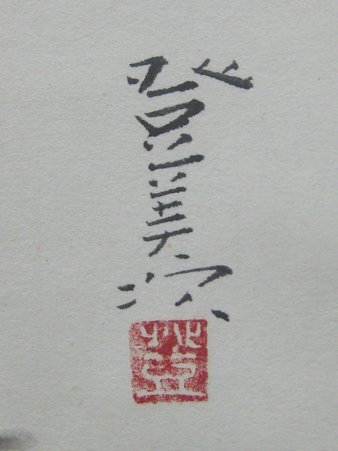 登美次